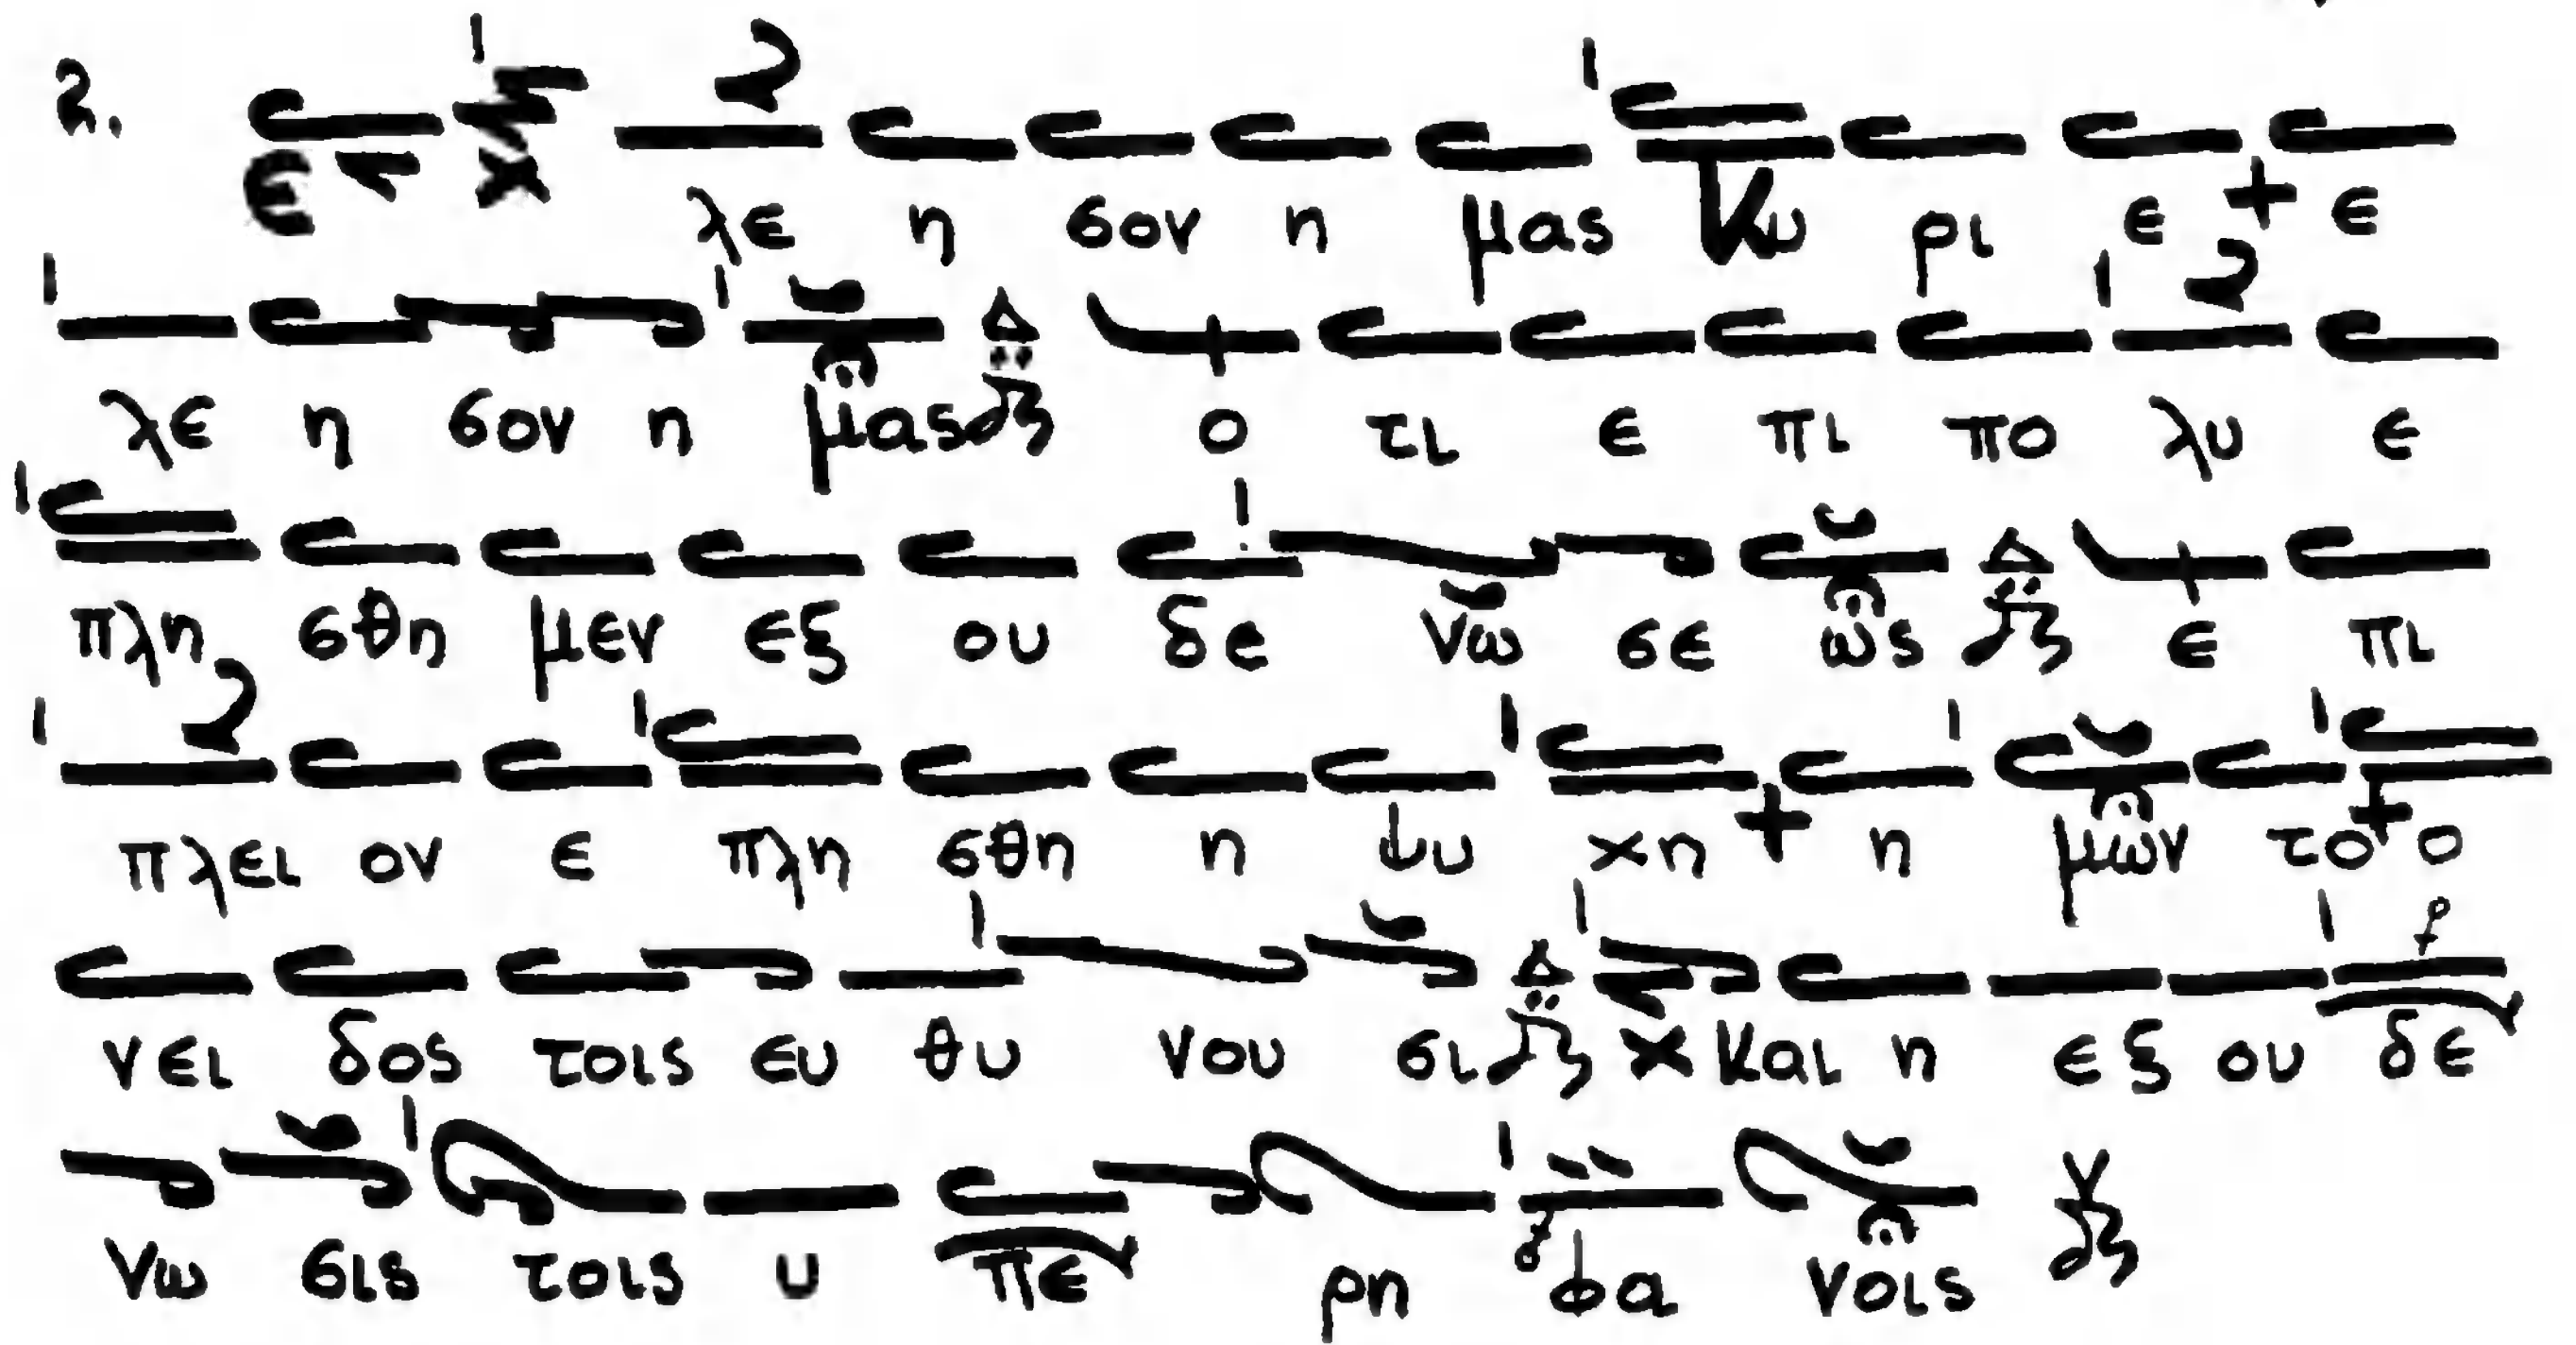 2. ε λε η σον η μας Κυ ρι ε ε
λε η σον η μας ο τι ε πι πο λυ ε
πλη σθη μεν εξ ου δε νω σε ως ε πι
πλει ον ε πλη σθη η ψυ χη η μων το ο
νει δος τοις ευ θυ νου σι και η εξ ου δε
νω σις τοις υ πε ρη φα νοις